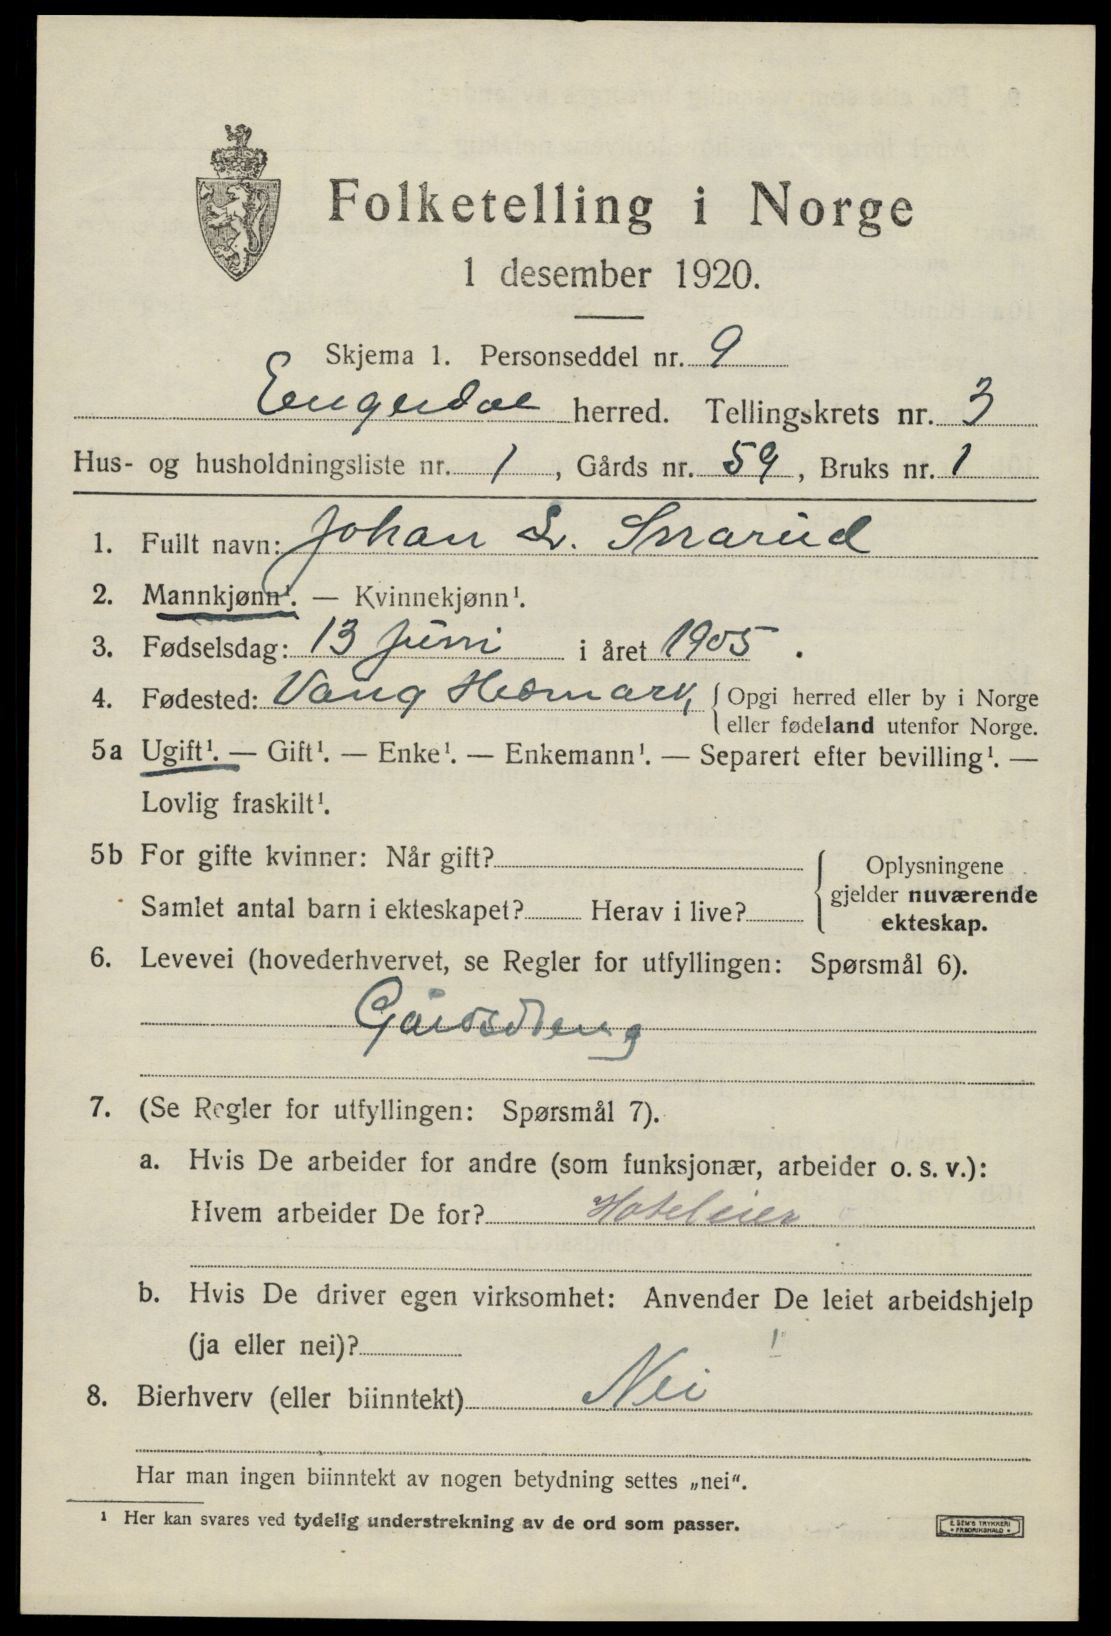 Folketelling i Norge
1 desember 1920.
Skjema 1. Personseddel nr. 9
Engerdal herred. Tellingskrets nr. 3
Hus- og husholdningsliste nr. 1, Gårds nr. 59, Bruks nr. 1
1. Fullt navn: Johan L. Smarud
2. Mannkjønn¹. — Kvinnekjønn¹.
3. Fødselsdag: 13 Juni i året 1905.
4. Fødested: Vang Hedmark, { Opgi herred eller by i Norge
eller fødeland utenfor Norge.
5a Ugift¹. — Gift¹. — Enke¹. — Enkemann¹. — Separert efter bevilling¹. —
Lovlig fraskilt¹.
5b For gifte kvinner: Når gift?
Samlet antal barn i ekteskapet? Herav i live?
{ Oplysningene
gjelder nuværende
ekteskap.
6. Levevei (hovederhvervet, se Regler for utfyllingen: Spørsmål 6).
Gårdsdreng
7. (Se Regler for utfyllingen: Spørsmål 7).
a. Hvis De arbeider for andre (som funksjonær, arbeider o. s. v.):
Hvem arbeider De for? Hoteleier
b. Hvis De driver egen virksomhet: Anvender De leiet arbeidshjelp
(ja eller nei)?
8. Bierhverv (eller biinntekt) Nei
Har man ingen biinntekt av nogen betydning settes „nei“.
¹ Her kan svares ved tydelig understrekning av de ord som passer.
E. SEM'S TRYKKERI
• FREDRIKSHALD •